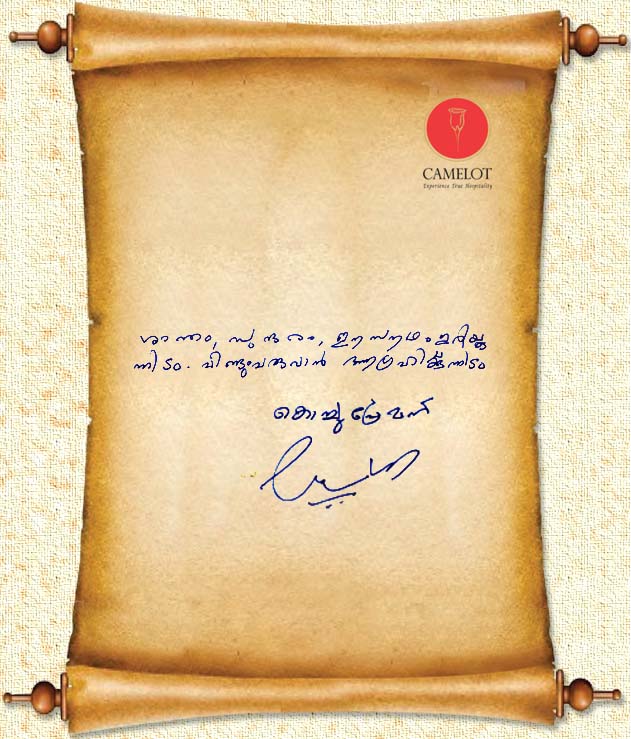 CAMELOT
Experience True Hospitality
ശാന്തം, സുന്ദരം, ഈ സൗധം ഇരിക്കു
ന്നിടം. വീണ്ടുംവരുവാൻ ആഗ്രഹിക്കുന്നിടം
കൊച്ചു പ്രേമൻ